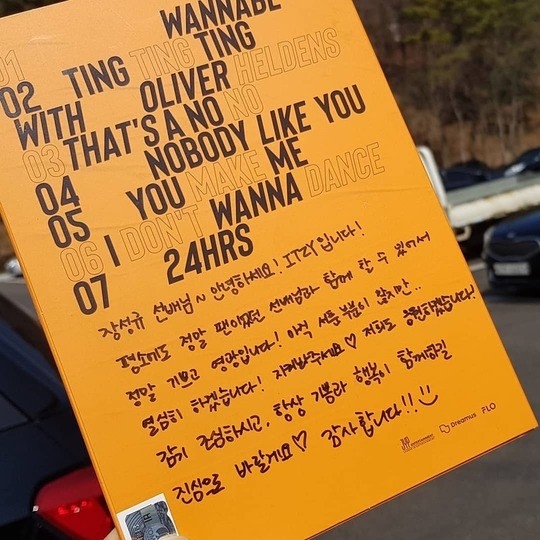 WANNABE
01
02 TING TING TING
WITH OLIVER HELDENS
03 THAT'S A NO NO
04 NOBODY LIKE YOU
05 YOU MAKE ME
06 I DON'T WANNA DANCE
07 24HRS
장성규 선배님~ 안녕하세요! ITZY입니다!
평소에도 정말 팬이였던 선배님과 함께 할 수 있어서
정말 기쁘고 영광입니다! 아직 서툰 부분이 많지만..
열심히 하겠습니다! 지켜봐주세요♡ 저희도 응원하겠습니다!
감기 조심하시고, 항상 기쁨과 행복이 함께하길
진심으로 바랄게요♡ 감사합니다!!
JYP ENTERTAINMENT Dreamus FLO